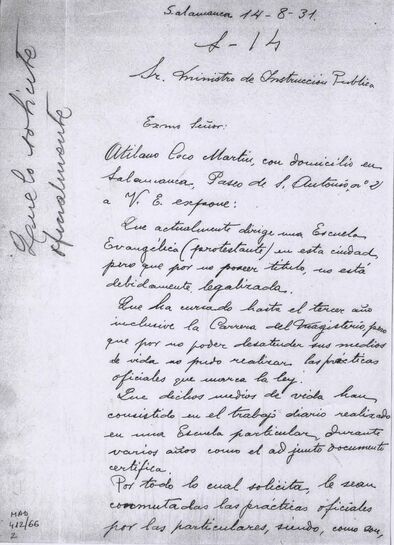 Salamanca 14-8-31.
S-14
Sr. Ministro de Instrucción Publica
Exmo Señor:
Atilano Coco Martin, con domicilio en
Salamanca, Paseo de S. Antonio, nº 2
a V. E. expone:
Que actualmente dirige una Escuela
Evangélica (protestante) en esta ciudad,
pero que por no poseer titulo, no está
debidamente legalizada.
Que ha cursado hasta el tercer año
inclusive la Carrera del Magisterio, pero
que por no poder desatender sus medios
de vida no pudo realizar las prácticas
oficiales que marca la ley.
Que dichos medios de vida han
consistido en el trabajo diario realizado
en una Escuela particular, durante
varios años como el adjunto documento
certifica.
Por todo lo cual solicita, le sean
conmutadas las practicas oficiales
por las particulares, siendo, como son,
Que lo solicite
oficialmente
MAD
412/66
2